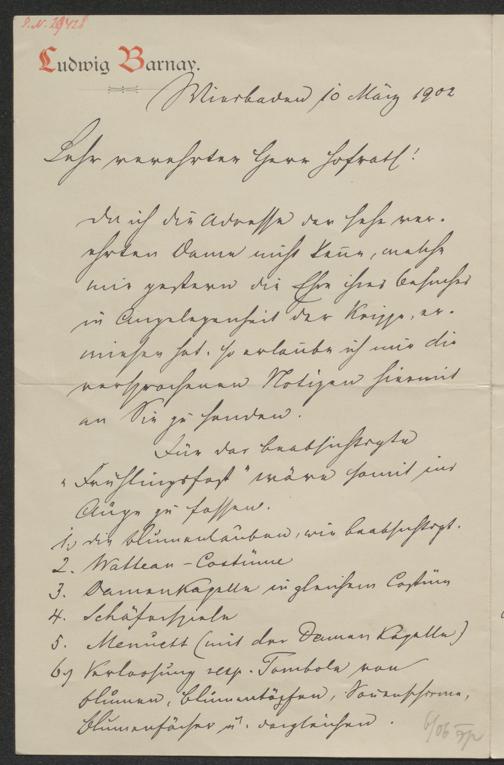 P.N. 29428
Ludwig Barnay.
Wiesbaden 10 März 1902
Sehr verehrter Herr Hofrath!
Da ich die Adresse der sehr ver-
ehrten Dame nicht kenne, welche
mir gestern die Ehre ihres Besuches
in Angelegenheit der Krippe, er-
wiesen hat, so erlaube ich mir die
versprochenen Notizen hiermit
an Sie zu senden.
Für das beabsichtigte
"Frühlingsfest" wäre somit ins
Auge zu fassen.
1.) die Blumenlauben, wie beabsichtigt.
2. Watteau-Costüme
3. Damenkapelle in gleichem Costüm
4. Schäferspiele
5. Menuett (mit der Damen Kapelle)
6.) Verloosung resp. Tombola von
Blumen, Blumentöpfen, Sonnenschirme,
Blumenfächer u. dergleichen.